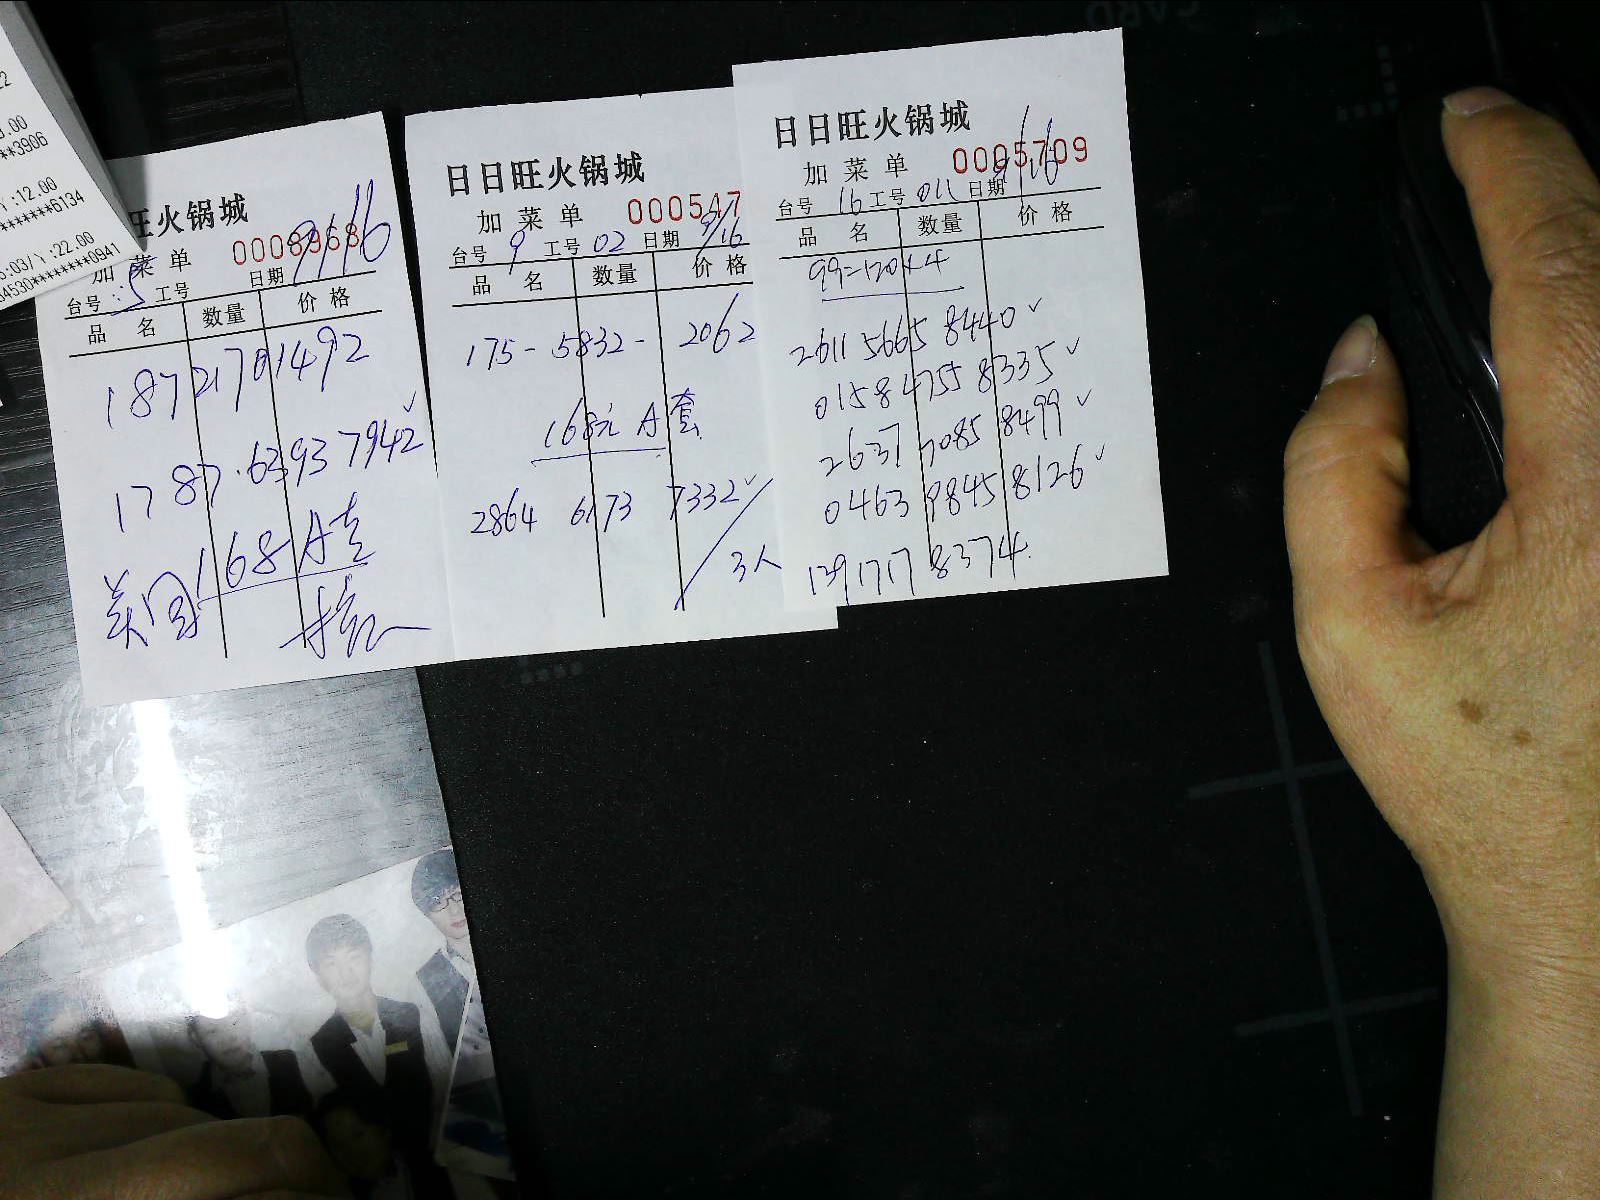 22
3.00
**3906
:12.00
*******6134
:03/ :22.00
34530*******0941
旺火锅城
加菜单 0008968
台号:5 工号 日期 9/16
品名 数量 价格
18721701492
1787.6393 7942✓
168 A套
美团
日日旺火锅城
加菜单 000547
台号 9 工号 02 日期 9/16
品名 数量 价格
175-5832-2062
168元 A套
2864 6173 7332✓
3人
日日旺火锅城
加菜单 0005709
台号 16 工号 011 日期 9/16
品名 数量 价格
99=120×4
2611 5665 8440✓
0158 4755 8335✓
2637 7085 8499✓
0463 9845 8126✓
139 1717 8374
CARD